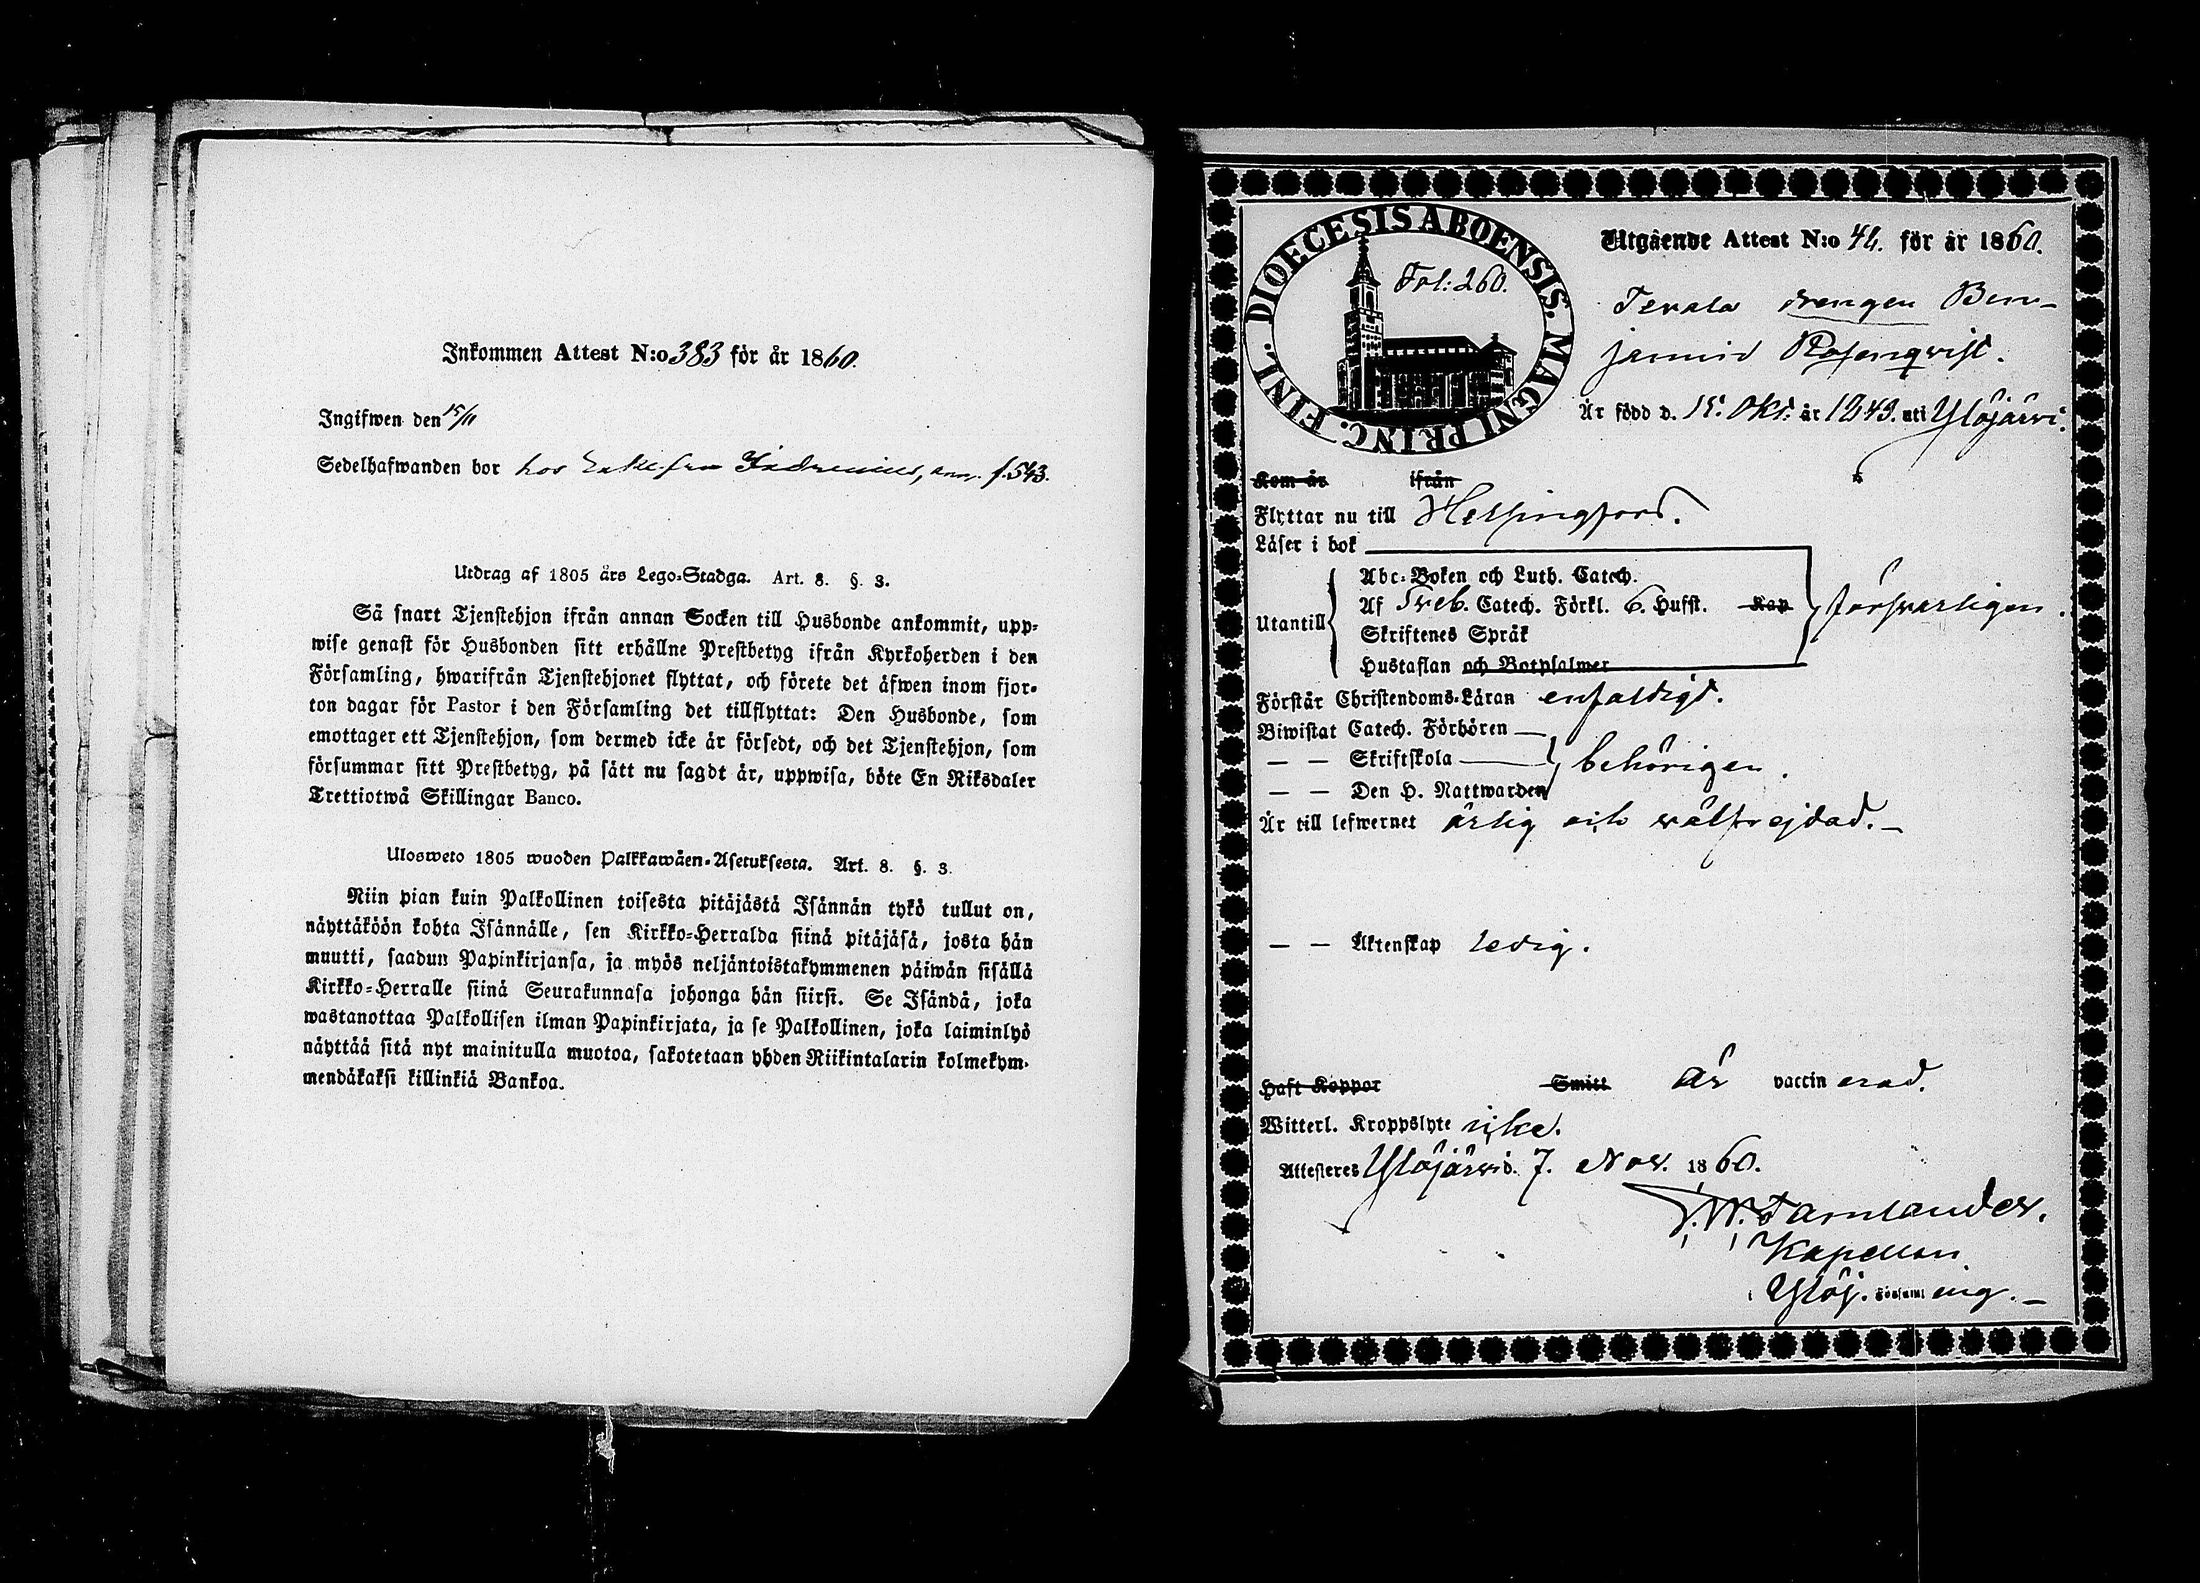 Inkommen Attest N:o 383 för år 1860.
Ingifwen den 15/11
Sedelhafwanden bor hos Enkefru f. 543.
Utdrag af 1805 års Lego-Stadga. Art. 8. §. 3.
Så snart Tjenstehjon ifrån annan Socken till Husbonde ankommit, upp-
wise genast för Husbonden sitt erhållne Prestbetyg ifrån Kyrkoherden i den
Församling, hwarifrån Tjenstehjonet flyttat, och förete det äfwen inom fjor-
ton dagar för Pastor i den Församling det tillflyttat: Den Husbonde, som
emottager ett Tjenstehjon, som dermed icke är försedt, och det Tjenstehjon, som
försummar sitt Prestbetyg, på sätt nu sagdt är, uppwisa, böte En Riksdaler
Trettiotwå Skillingar Banco.
Ulosweto 1805 wuoden Palkkawäen-Asetuksesta. Art. 8. §. 3.
Niin pian kuin Palkollinen toisesta pitäjästä Isännän tykö tullut on,
näyttäköön kohta Isännälle, sen Kirkko-Herralda siinä pitäjäsä, josta hän
muutti, saadun Papinkirjansa, ja myös neljäntoistakymmenen päiwän sisällä
Kirkko-Herralle siinä Seurakunnasa johonga hän siirsi. Se Isändä, joka
wastanottaa Palkollisen ilman Papinkirjata, ja se Palkollinen, joka laiminlyö
näyttää sitä nyt mainitulla muotoa, sakotetaan yhden Riikintalarin kolmekym-
mendäkaksi killinkiä Bankoa.
DIOECESIS ABOENSIS. MAGNI PRINC. FINL.
Fol: 260.
Utgående Attest N:o 44. för år 1860.
drengen Ben-
jamin Rosenqvist.
Är född d. 15. Okt. år 1843. uti Ylöjärwi.
Kom år ifrån
Flyttar nu till Helsingfors.
Läser i bok
Abc-Boken och Luth. Catech.
Utantill Af Sveb. Catech. Förkl. 6. Hufst. Kap försvarligen.
Skriftenes Språk
Hustaflan och Botpsalmer
Förstår Christendoms-Läran enfaldigt.
Biwistat Catech. Förhören
— — Skriftskola behörigen.
— — Den H. Nattwarden
Är till lefwernet ärlig och wälfrejdad.—
— — Äktenskap ledig.
Haft Koppor Smitt är vaccinerad.
Witterl. Kroppslyte icke.
Attesteras Ylöjärwi d. 7. Nov. 1860.
Kapellan
i Ylöj. Församling.—